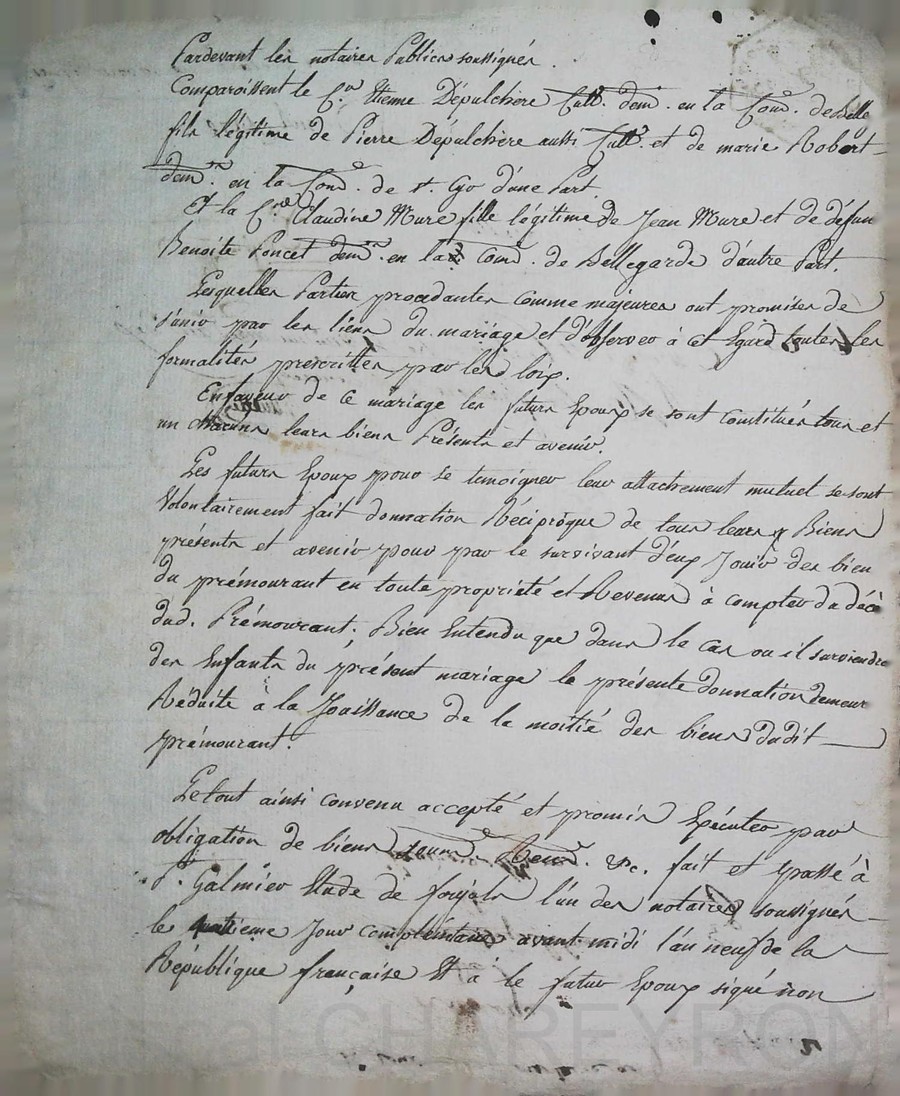 Pardevant les notaires Publics soussignés.
Comparoissent le C.en Etienne Dépulchère Cult.r dem.t en la Com.e de Belle
fils légitime de Pierre Dépulchère aussi Cult.r et de marie Robert
dem.ts en la Com.e de st. Cyr d'une Part
Et la C.ne Claudine Mure fille légitime de Jean Mure et de défun
Benoite Poncet dem.t en la Com.e de Bellegarde d'autre Part.
Lesquelles Parties procedantes comme majeures ont promises de
s'unir par les liens du mariage et d'observer à cet Egard toutes les
formalités prescrittes par les loix.
En faveur de ce mariage les futurs Epoux se sont constitués tous et
un chacuns leurs biens Présents et avenir.
Les futurs Epoux pour se temoigner leur attachement mutuel se sont
Volontairement fait donnation Réciproque de tous leurs Biens
présents et avenir pour par le survivant d'eux Jouir des bien
du prémourant en toute propriété et Revenus à compter du décè
dud. Prémourant; Bien Entendu que dans le cas ou il surviendra
des Enfants du présent mariage le présente donnation demeur
Réduite à la Jouissance de la moitié des biens dudit
prémourant.
Le tout ainsi convenu accepté et promis Exécuter par
obligation de biens &c. fait et passé à
st. Galmier Etude de l'un des notaires soussignés
le jour complémentaire avant midi l'an neuf de la
République française Et à le futur Epoux signé non
CHAREYRON